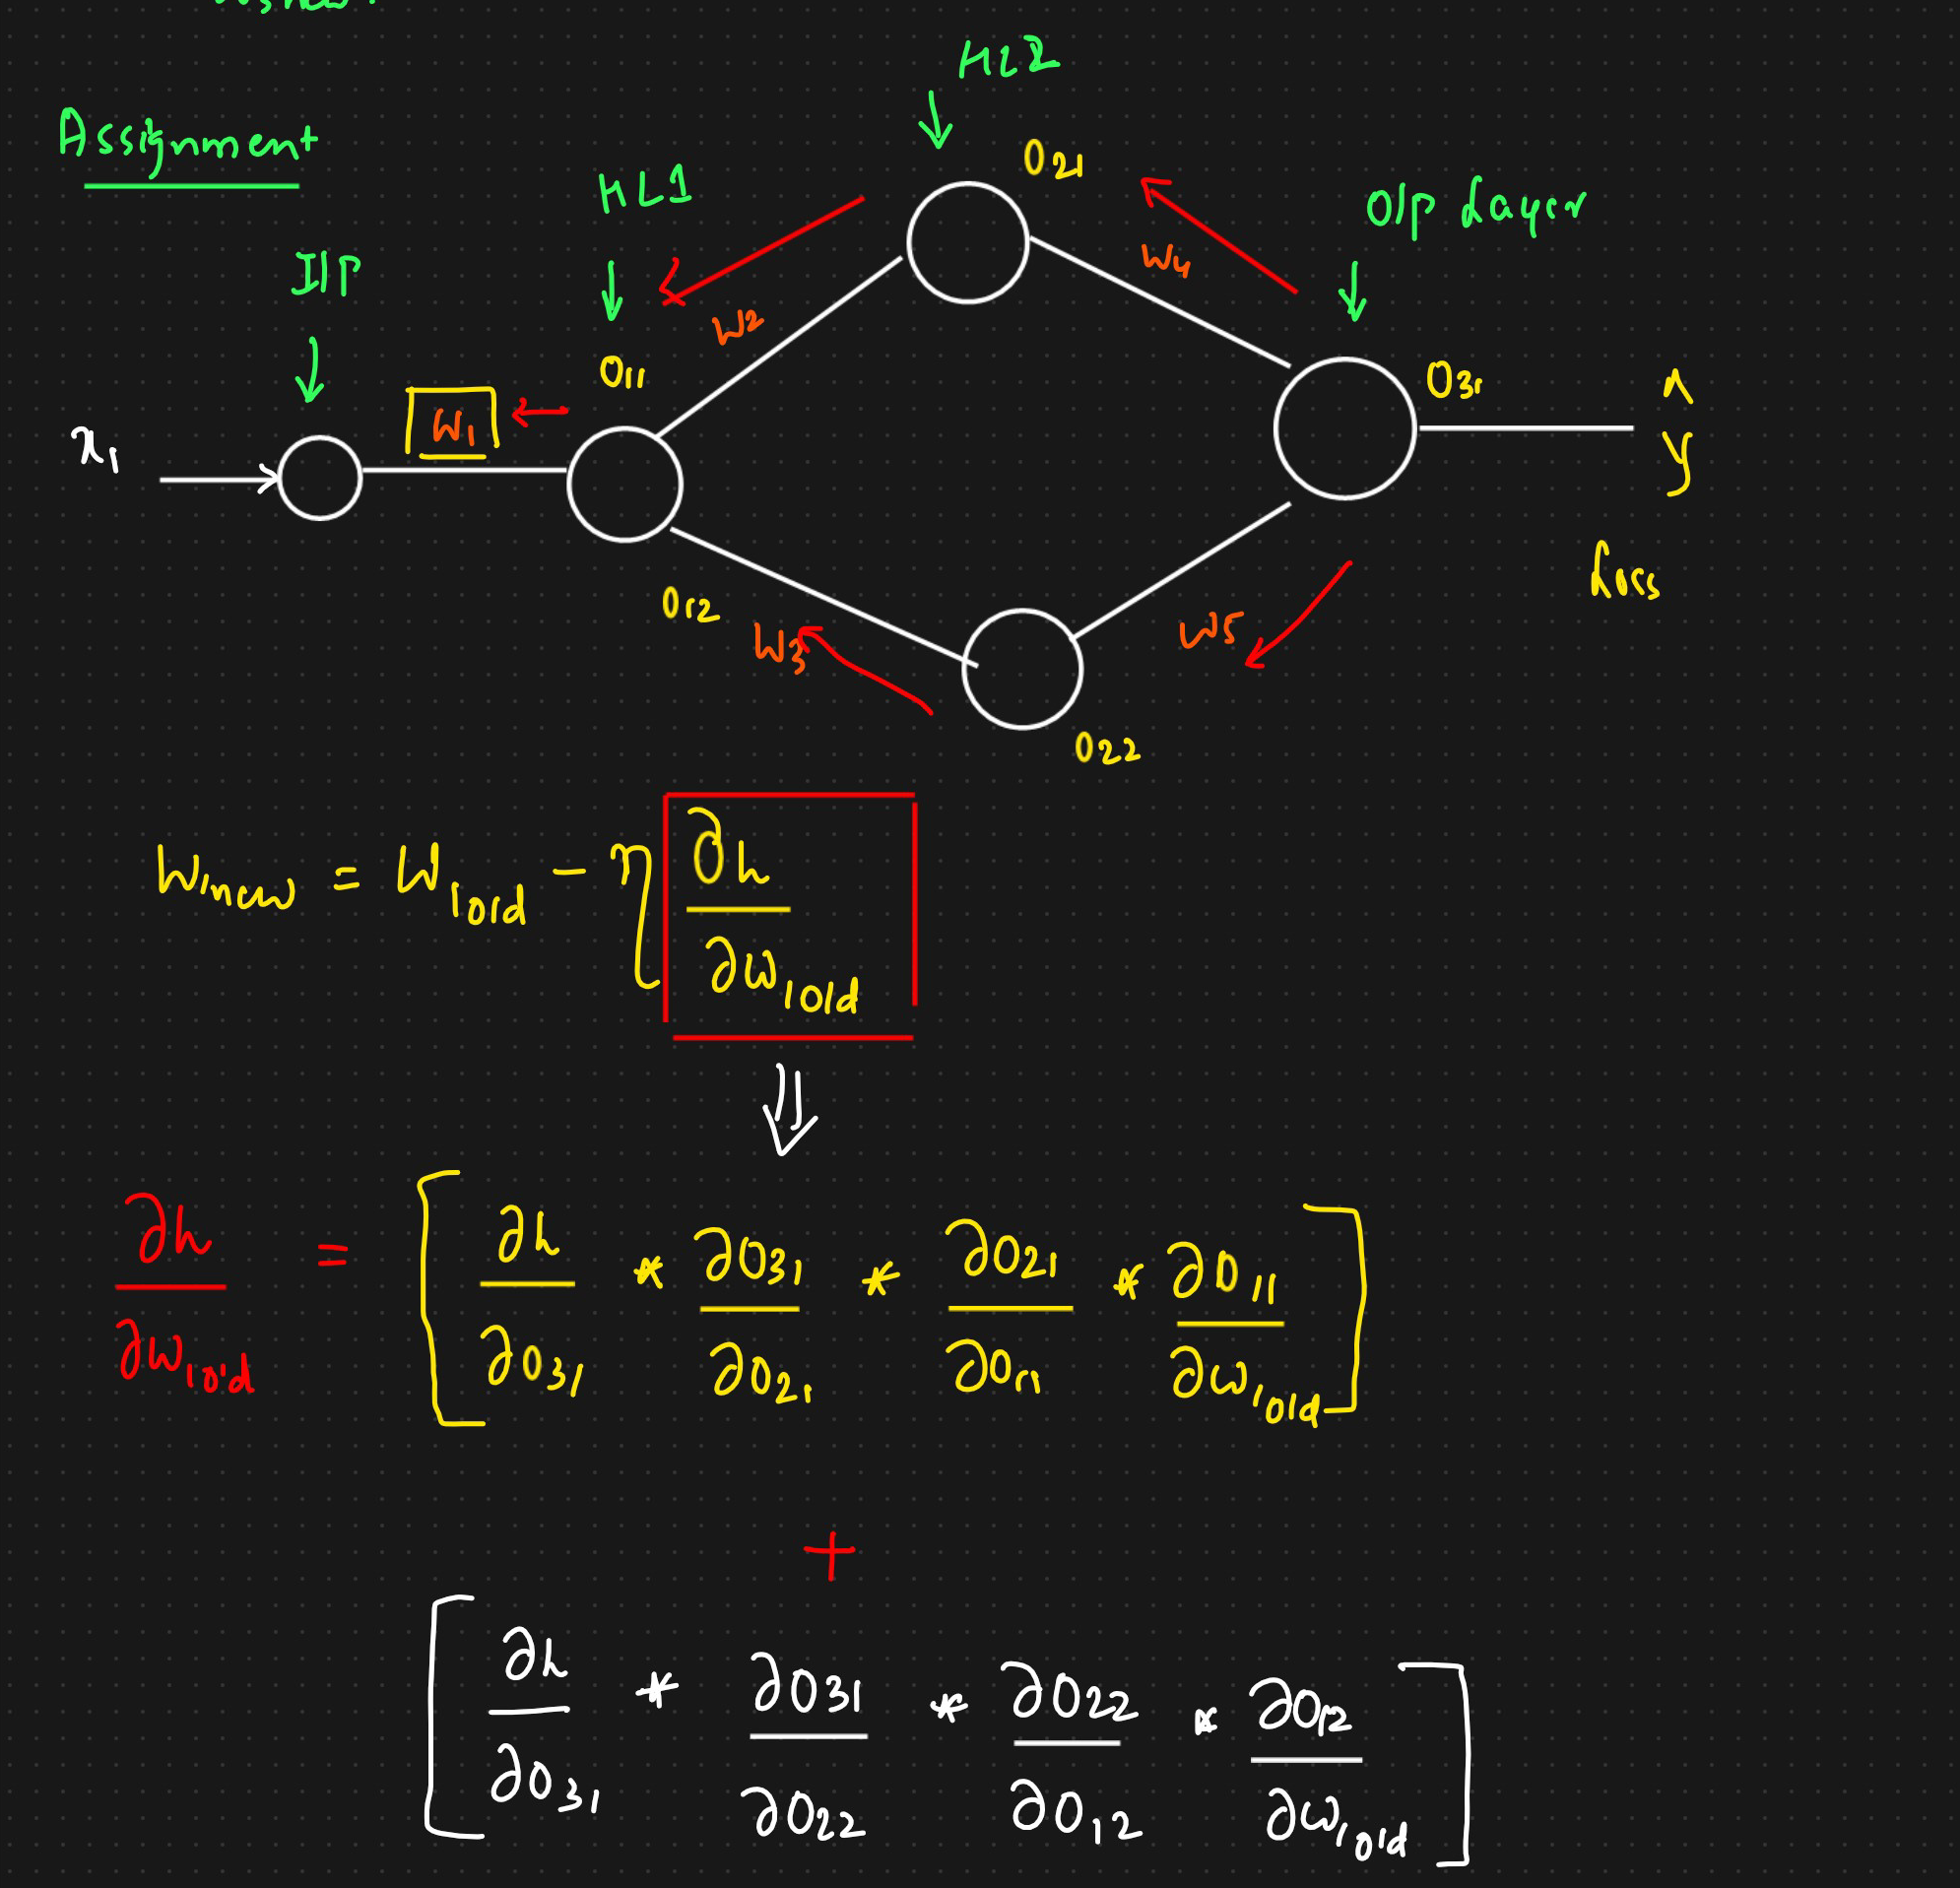 HL2
Assignment
O21
HL1
O/p Layer
I/P
W4
W2
O11
O31
ŷ
W1
x1
Loss
O12
W3
W5
O22
W1new = W1old - η [ ∂L / ∂W1old
⇓
∂L / ∂W1old = [ ∂L / ∂O31 * ∂O31 / ∂O21 * ∂O21 / ∂O11 * ∂O11 / ∂W1old ]
+
[ ∂L / ∂O31 * ∂O31 / ∂O22 * ∂O22 / ∂O12 * ∂O12 / ∂W1old ]